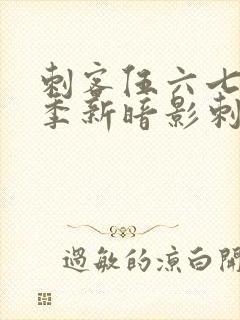 刺客伍六七
季新暗影刺
過敏的涼白開